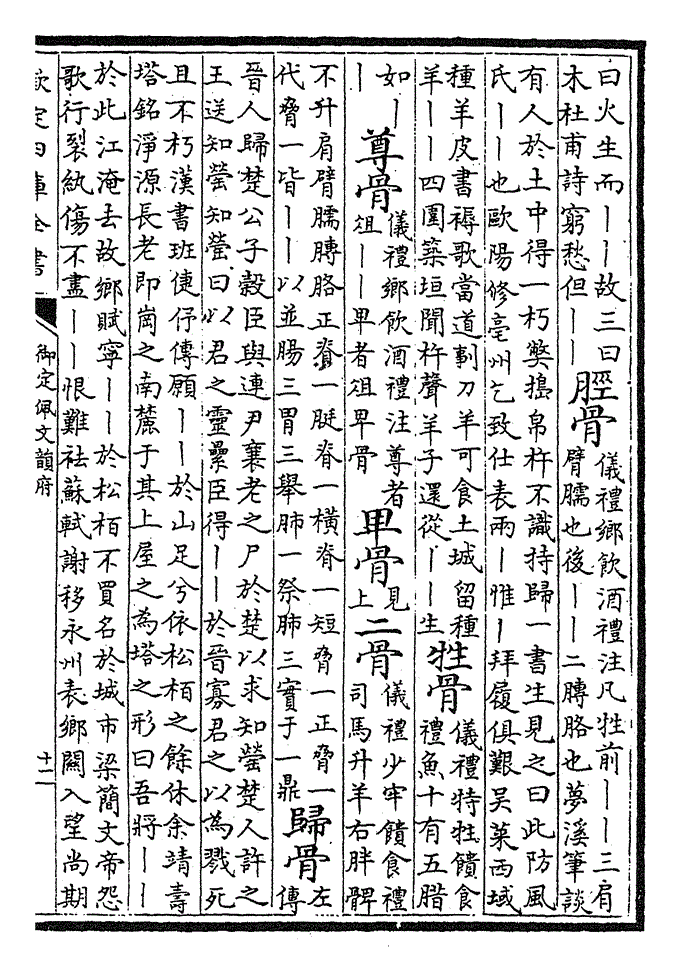 曰火生而丨丨故三曰
木杜甫詩窮愁但丨丨
脛骨
儀禮鄉飲酒禮注凡牲前丨丨三肩
臂臑也後丨丨二膊胳也夢溪筆談
有人於土中得一朽弊搗帛杵不識持歸一書生見之曰此防風
氏丨丨也歐陽修亳州乞致仕表兩丨惟丨拜履俱艱吳萊西域
種羊皮書褥歌當道刲刀羊可食土城留種
羊丨丨四圍築垣聞杵聲羊子還從丨丨生
牲骨
儀禮特牲饋食
禮魚十有五腊
如丨
丨
尊骨
儀禮鄉飲酒禮注尊者
俎丨丨卑者俎卑骨
卑骨
見
上
二骨
儀禮少牢饋食禮
司馬升羊右胖髀
不升肩臂臑膊胳正脊一脡脊一橫脊一短脅一正脅一
代脅一皆丨丨以並腸三胃三舉肺一祭肺三實于一鼎
歸骨
左
傳
晉人歸楚公子榖臣與連尹襄老之尸於楚以求知罃楚人許之
王送知罃知罃曰以君之靈纍臣得丨丨於晉寡君之以為戮死
且不朽漢書班倢伃傳願丨丨於山足兮依松柏之餘休余靖壽
塔銘淨源長老即崗之南麓于其上屋之為塔之形曰吾將丨丨
於此江淹去故鄉賦寧丨丨於松柏不買名於城市梁簡文帝怨
歌行裂紈傷不盡丨丨恨難袪蘇軾謝移永州表鄉關入望尚期
欽定四庫全書
御定佩文韻府
十二